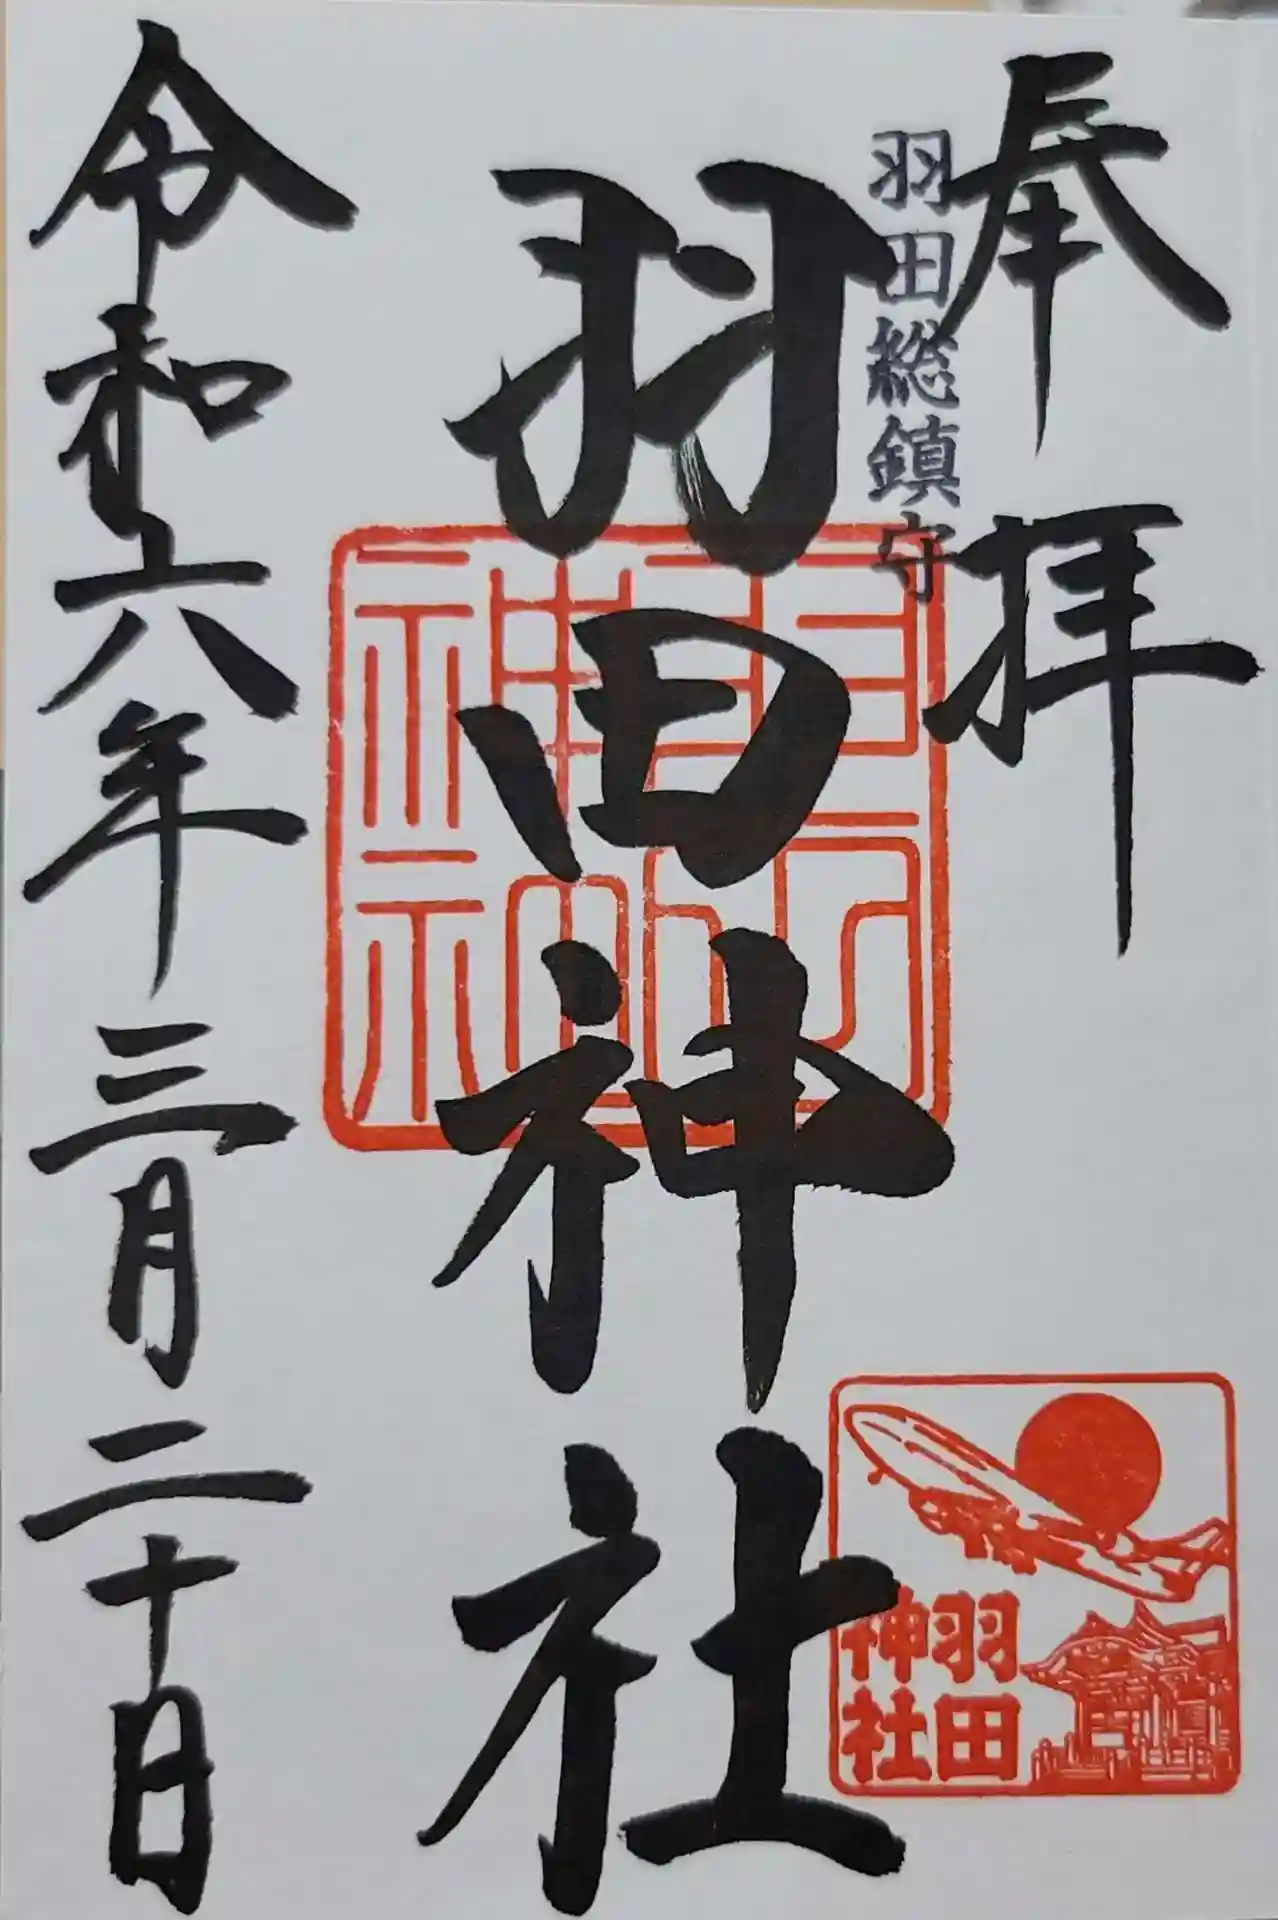 奉拝
羽田総鎮守
羽田神社
令和六年三月二十日
羽田
神社